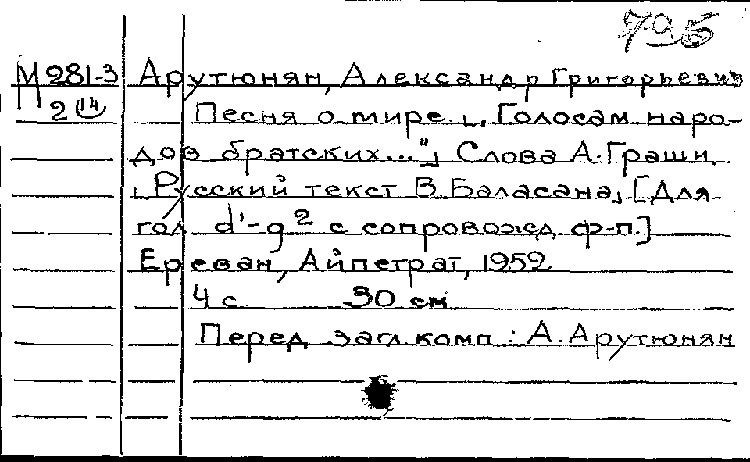 795
М 281-3 Арутюнян, Александр Григорьевич
2 Песня о мире. „Голосам наро-
дов братских..." Слова А. Граши,
Русский текст В. Баласана, [Для
гол. d'-g² с сопровожд. ф-п.]
Ереван, Айпетрат, 1952
4 с. 30 см
Перед загл. комп.: А. Арутюнян